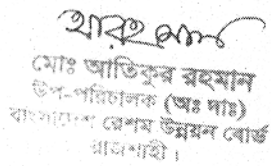 মোঃ আতিকুর রহমান
উপ-পরিচালক (অঃ দাঃ)
বাংলাদেশ রেশম উন্নয়ন বোর্ড
রাজশাহী।